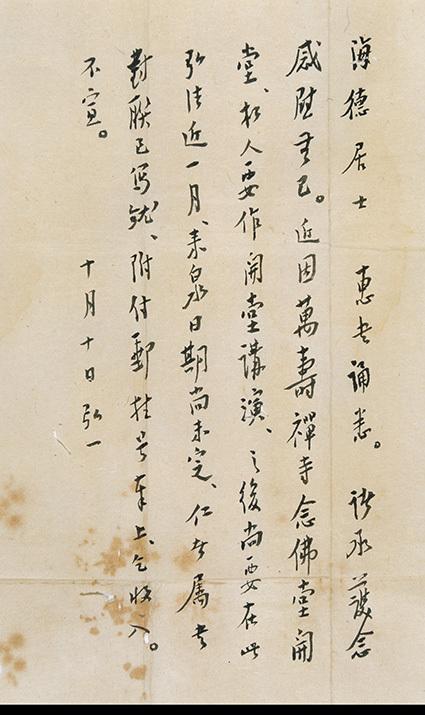 海德居士 惠書誦悉。諸承護念
感慰無已。近因萬壽禪寺念佛堂開
堂、朽人要作開堂講演、之後尚要在此
弘法近一月、來泉日期尚未定、仁者屬書
對聯已寫就、附付郵挂号奉上、乞收入。
不宣。
十月十日 弘一